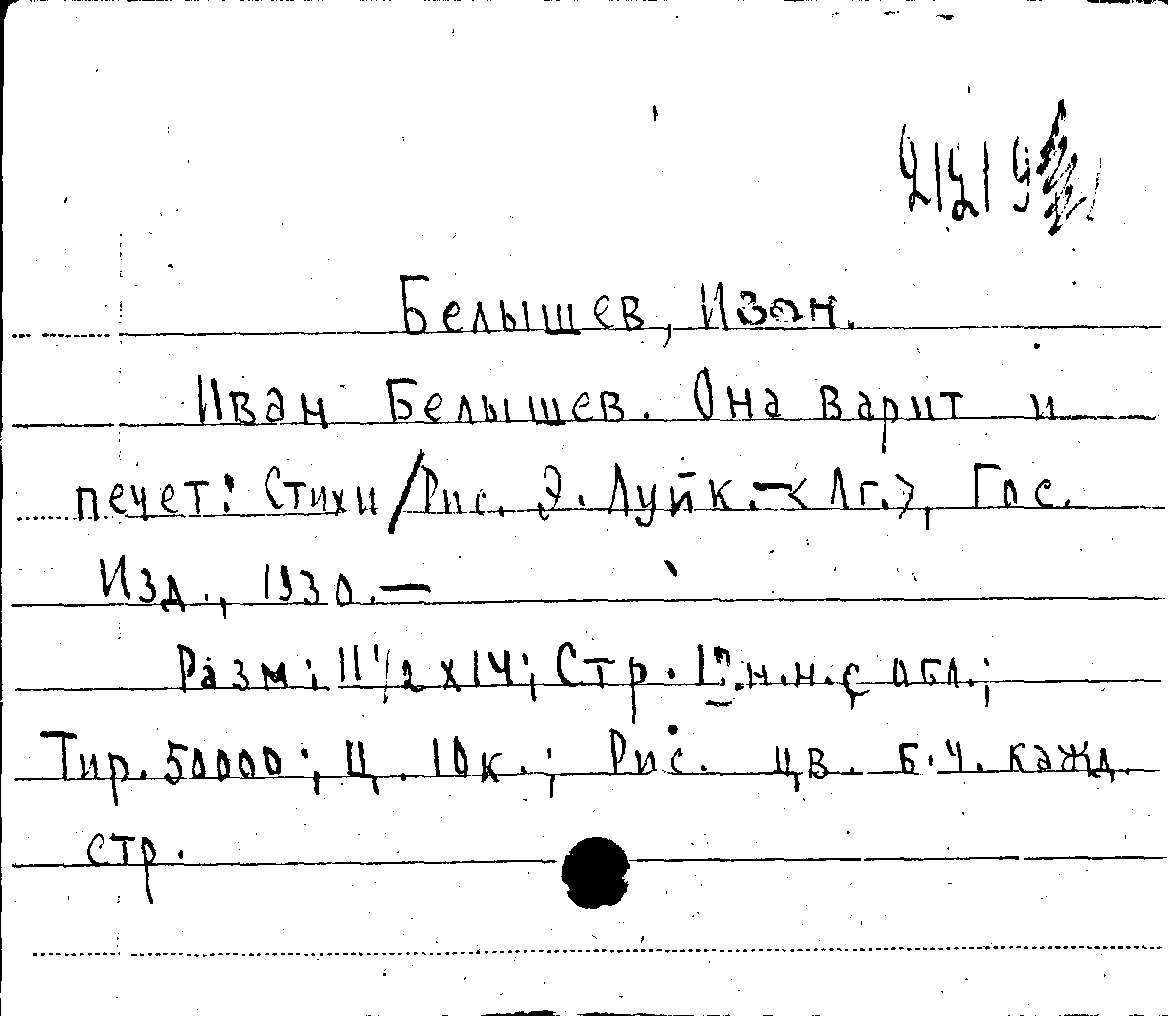 Белышев, Иван.
Иван Белышев. Она варит и
печет: Стихи / Рис. Э. Луйк. – <Лг.>, Гос.
Изд., 1930. —
Разм: 11 1/2 х 14; Стр. н.н. с обл.;
Тир. 50000; Ц. 10 к.; Рис. цв. б.ч. кажд.
стр.